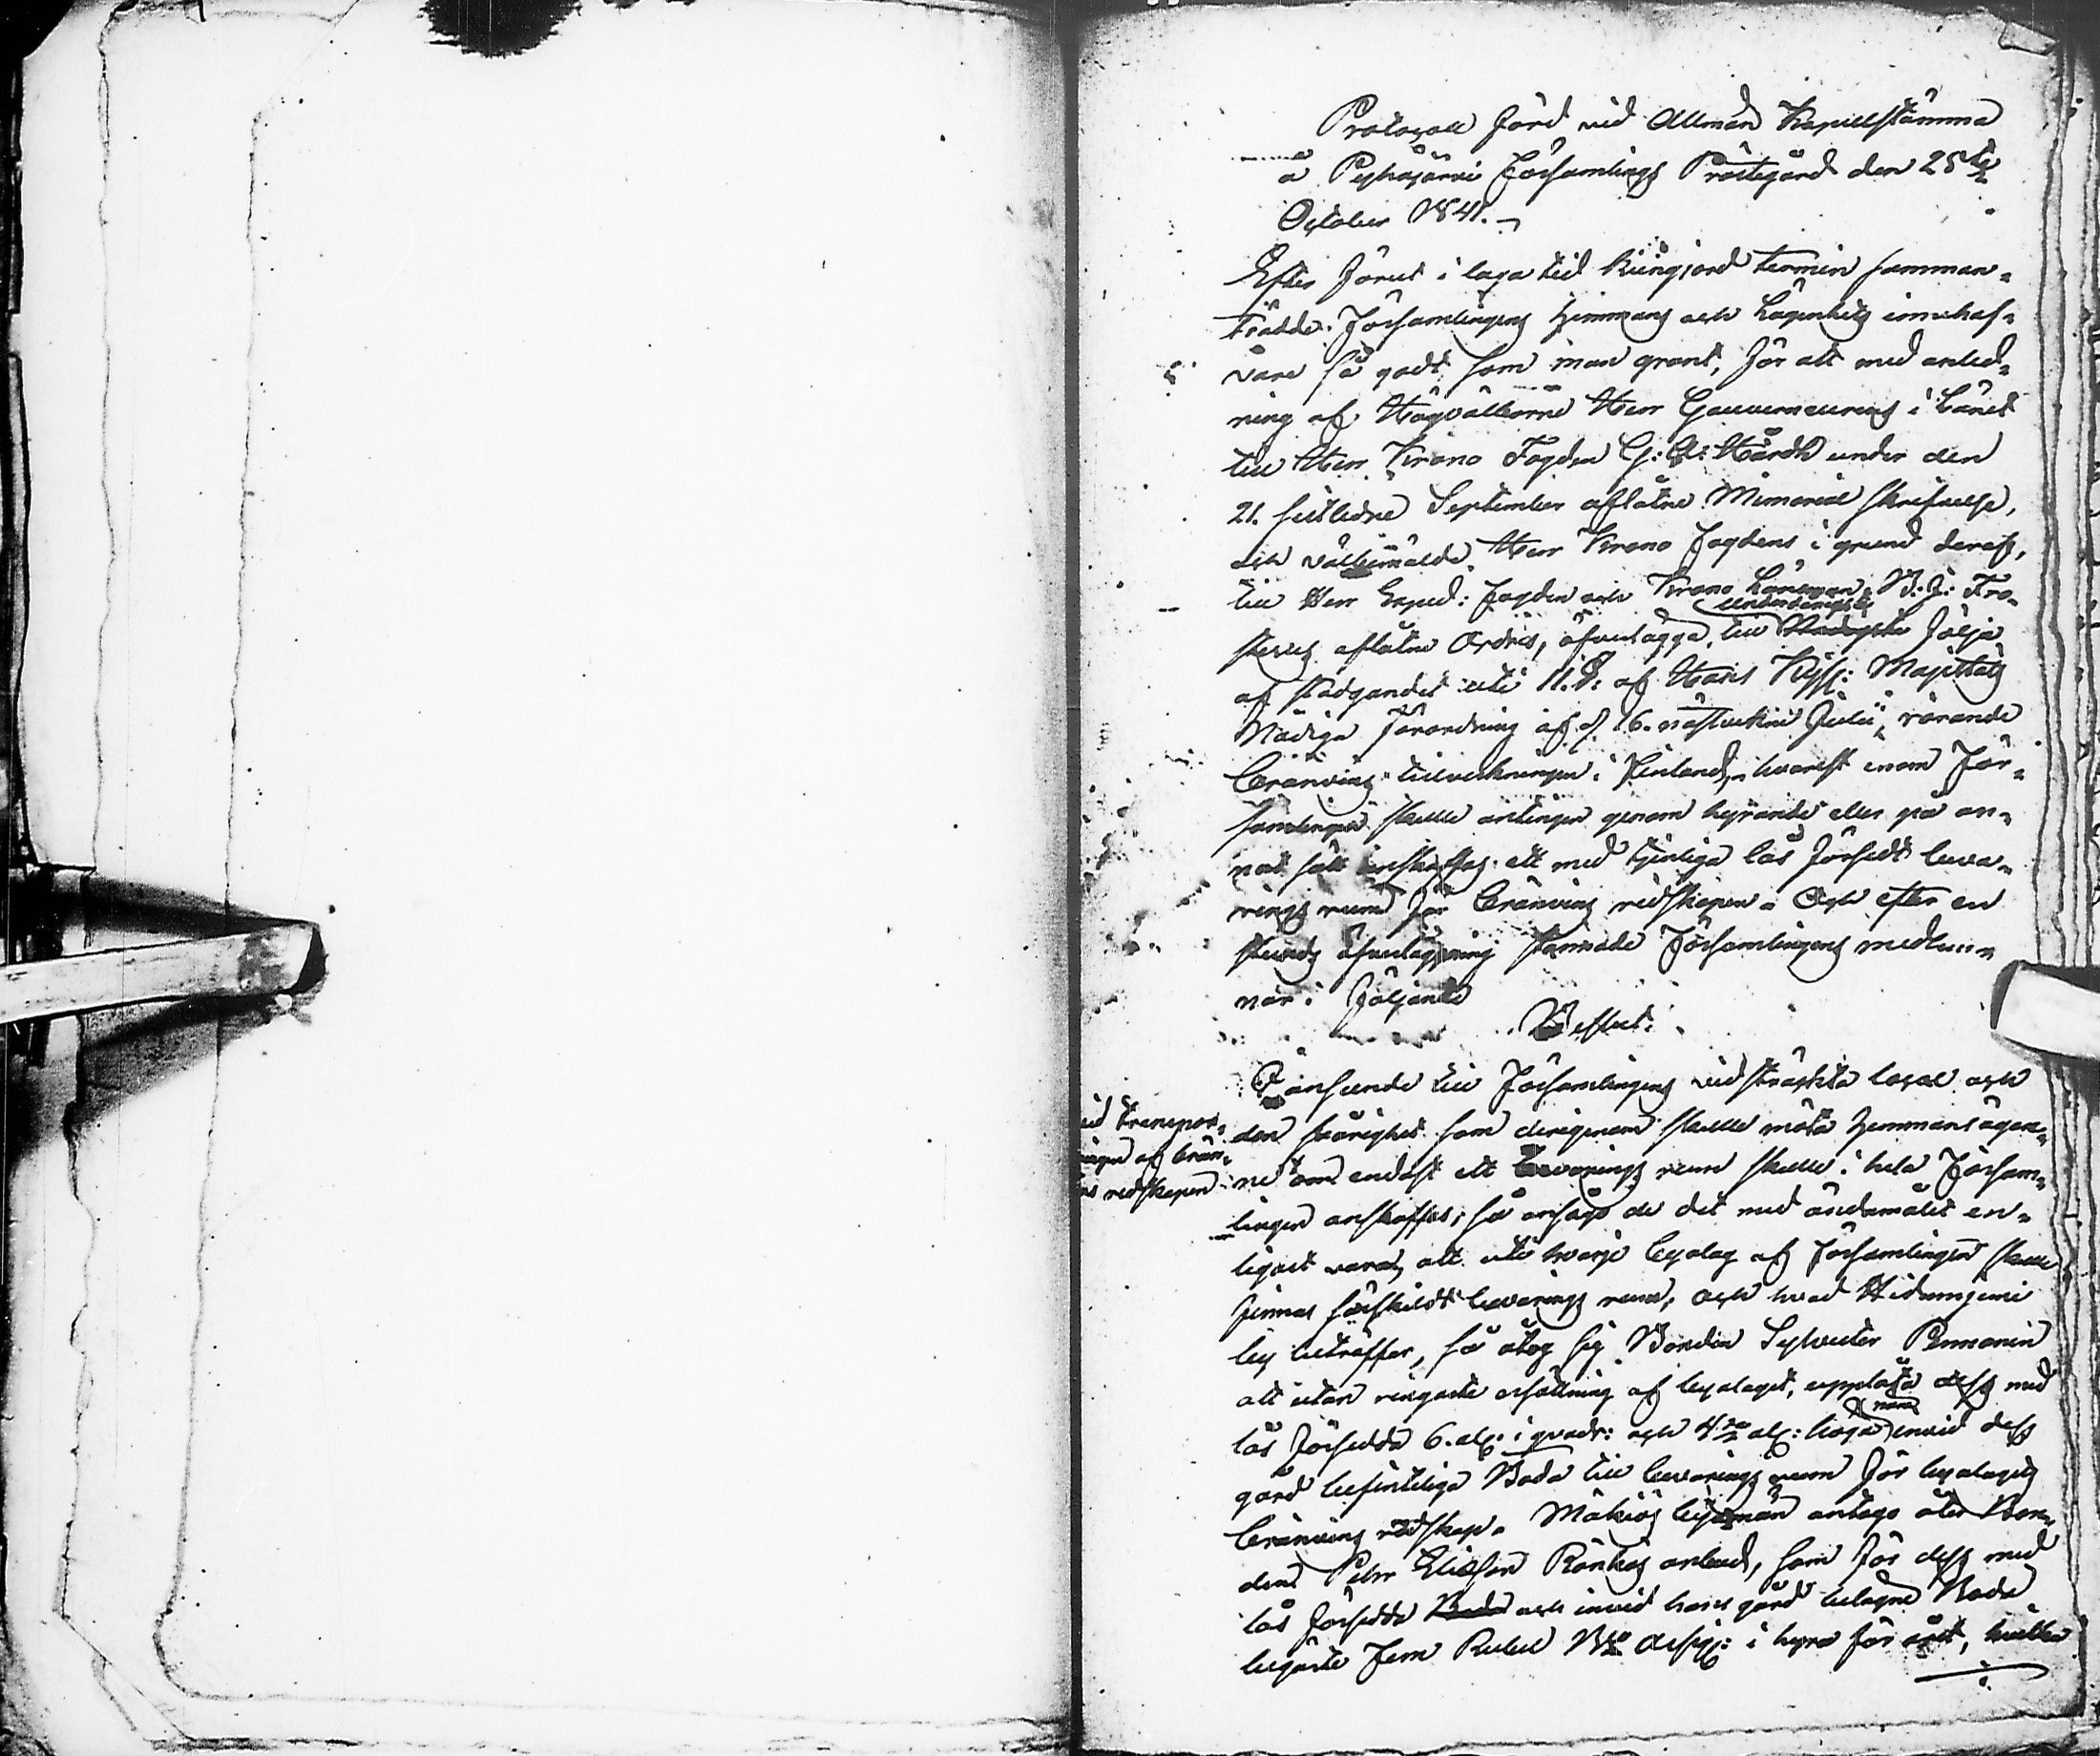 Protocoll förd vid Allmän Kapellstämma
å Pyhäjärvi Församlings Prästegård den 25te
October 1841.
Efter förut i laga tid kungjord termin samman-
trädde Församlingens Hemmans och Lägenhets innehaf-
vare så godt som man grant, för att med anled-
ning af Högvälborne Herr Gouverneurens i Länet
till Herr Krono Fogden G: A: Hårdh under den
21. sistledne September aflåtne Memorial skrifvelse,
och välbemälde Herr Krono Fogdens i grund deraf,
till Herr Exped: Fogden och Krono Länsman
aflåtne Ordres, öfverlägga, till underdånigste följe
af stadgandet uti 11. §: af Hans Kejs: Majestäts
Nådiga Förordning af d. 16. nästvekne Julii, rörande
Bränvins tillverkningen i Finland, hvarest inom För-
samlingen skulle antingen genom hyrande eller på an-
nat sätt anskaffas ett med tjenliga lås försedt beva-
rings rum för Bränvins redskapen. Och efter en
stunds öfverläggning stannade Församlingens medlem-
mar i följande
Beslut:
I anseende till Församlingens vidsträckta local och
den svårighet som derigenom skulle möta Hemmansägar-
ne om endast ett bevarings rum skulle i hela Försam-
lingen anskaffas; så ansågo de det med ändamålet en-
ligast vara, att uti hvarje byalag af Församlingen skulle
finnas särskildt bevarings rum, och hvad Hiidenniemi
by beträffar, så åtog sig Bonden Sylvester Pennanen
att utan ringaste ersättning af byalaget, upplåta dess med
lås försedda 6. aln: i quadr: och 4 aln: höga invid dess
gård befinteliga Boda till bevarings rum för byalagets
Bränvins redskap. Mäkiös byamän antogo åter Bon-
den Petter Eliasson Rönkös anbud, som för dess med
lås försedda och invid hans gård belägne Boda
begärte Fem Rubel B:co Assign: i hyra för året, hvilka
vid transpor-
af brän-
redskapen